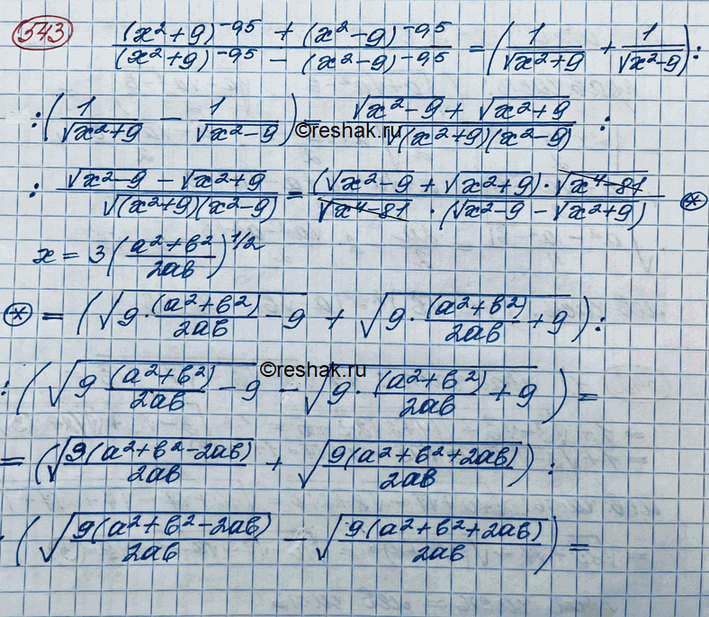 543 (x²+9)^-0,5 + (x²-9)^-0,5 / (x²+9)^-0,5 - (x²-9)^-0,5 = (1/√x²+9 + 1/√x²-9):
:(1/√x²+9 - 1/√x²-9) = √x²-9 + √x²+9 / √(x²+9)(x²-9) :
©reshak.ru
: √x²-9 - √x²+9 / √(x²+9)(x²-9) = (√x²-9 + √x²+9)·√x⁴-81 / √x⁴-81 · (√x²-9 - √x²+9) ⊛
x = 3(a²+b²/2ab)^1/2
⊛ = (√9·(a²+b²)/2ab - 9 + √9·(a²+b²)/2ab + 9):
©reshak.ru
:(√9 (a²+b²)/2ab - 9 - √9·(a²+b²)/2ab + 9) =
= (√9(a²+b²-2ab)/2ab + √9(a²+b²+2ab)/2ab):
:(√9(a²+b²-2ab)/2ab - √9(a²+b²+2ab)/2ab) =